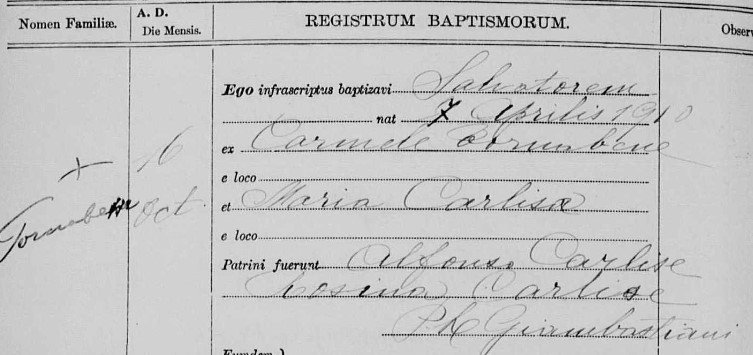 Nomen Familiæ.
A. D.
Die Mensis.
REGISTRUM BAPTISMORUM.
Observ
Ego infrascriptus baptizavi Salvatorem
nat 7 Aprilis 1910
16
ex Carmele
e loco
Oct.
et Maria Carlisa
e loco
Patrini fuerunt Alfonso Carlise
Rosina Carlise
Giambastiani
Eundem